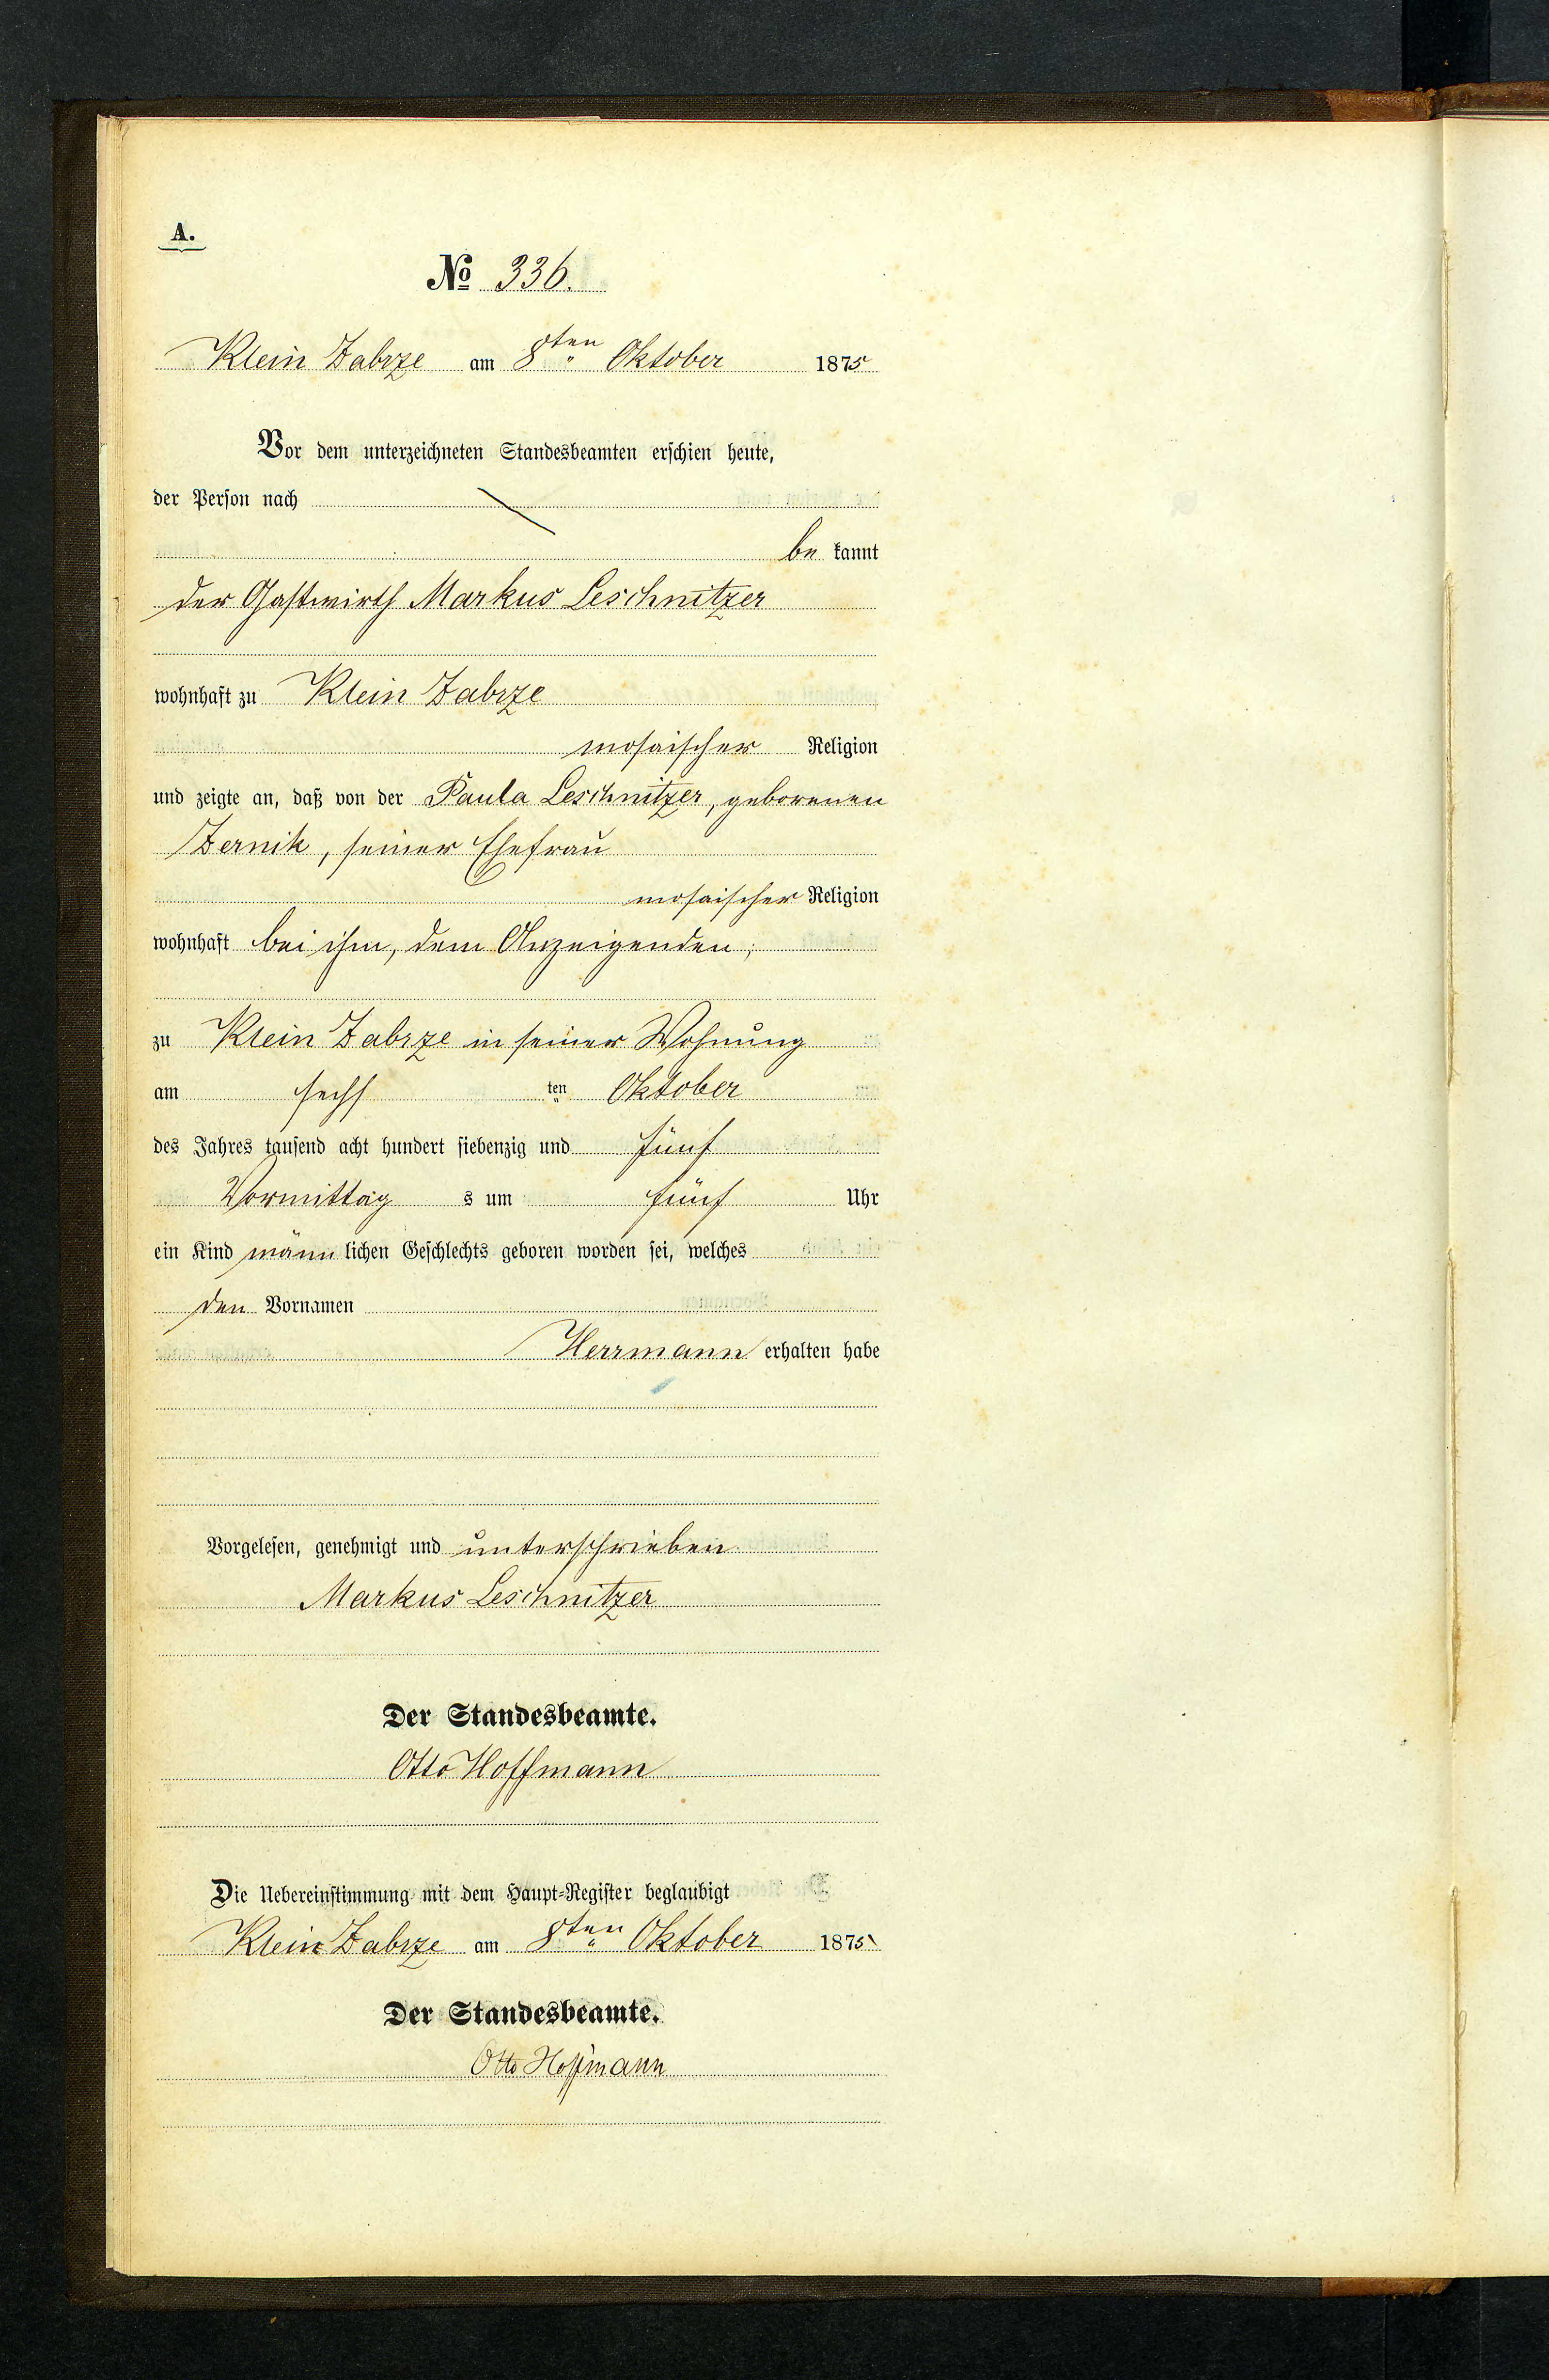 A.
№ 336.
Klein Zabrze am 8ten Oktober 1875
Vor dem unterzeichneten Standesbeamten erschien heute,
der Person nach
be kannt
der Gastwirth Markus Leschnitzer
wohnhaft zu Klein Zabrze
mosaischer Religion
und zeigte an, daß von der Paula Leschnitzer, geborenen
Zernik, seiner Ehefrau
mosaischer Religion
wohnhaft bei ihm, dem Anzeigenden,
zu Klein Zabrze in seiner Wohnung
am sechs ten Oktober
des Jahres tausend acht hundert siebenzig und fünf
Vormittag s um fünf Uhr
ein Kind männ lichen Geschlechts geboren worden sei, welches
den Vornamen
Herrmann erhalten habe
Vorgelesen, genehmigt und unterschrieben
Markus Leschnitzer
Der Standesbeamte.
Otto Hoffmann
Die Uebereinstimmung mit dem Haupt-Register beglaubigt
Klein Zabrze am 8ten Oktober 1875
Der Standesbeamte.
Otto Hoffmann